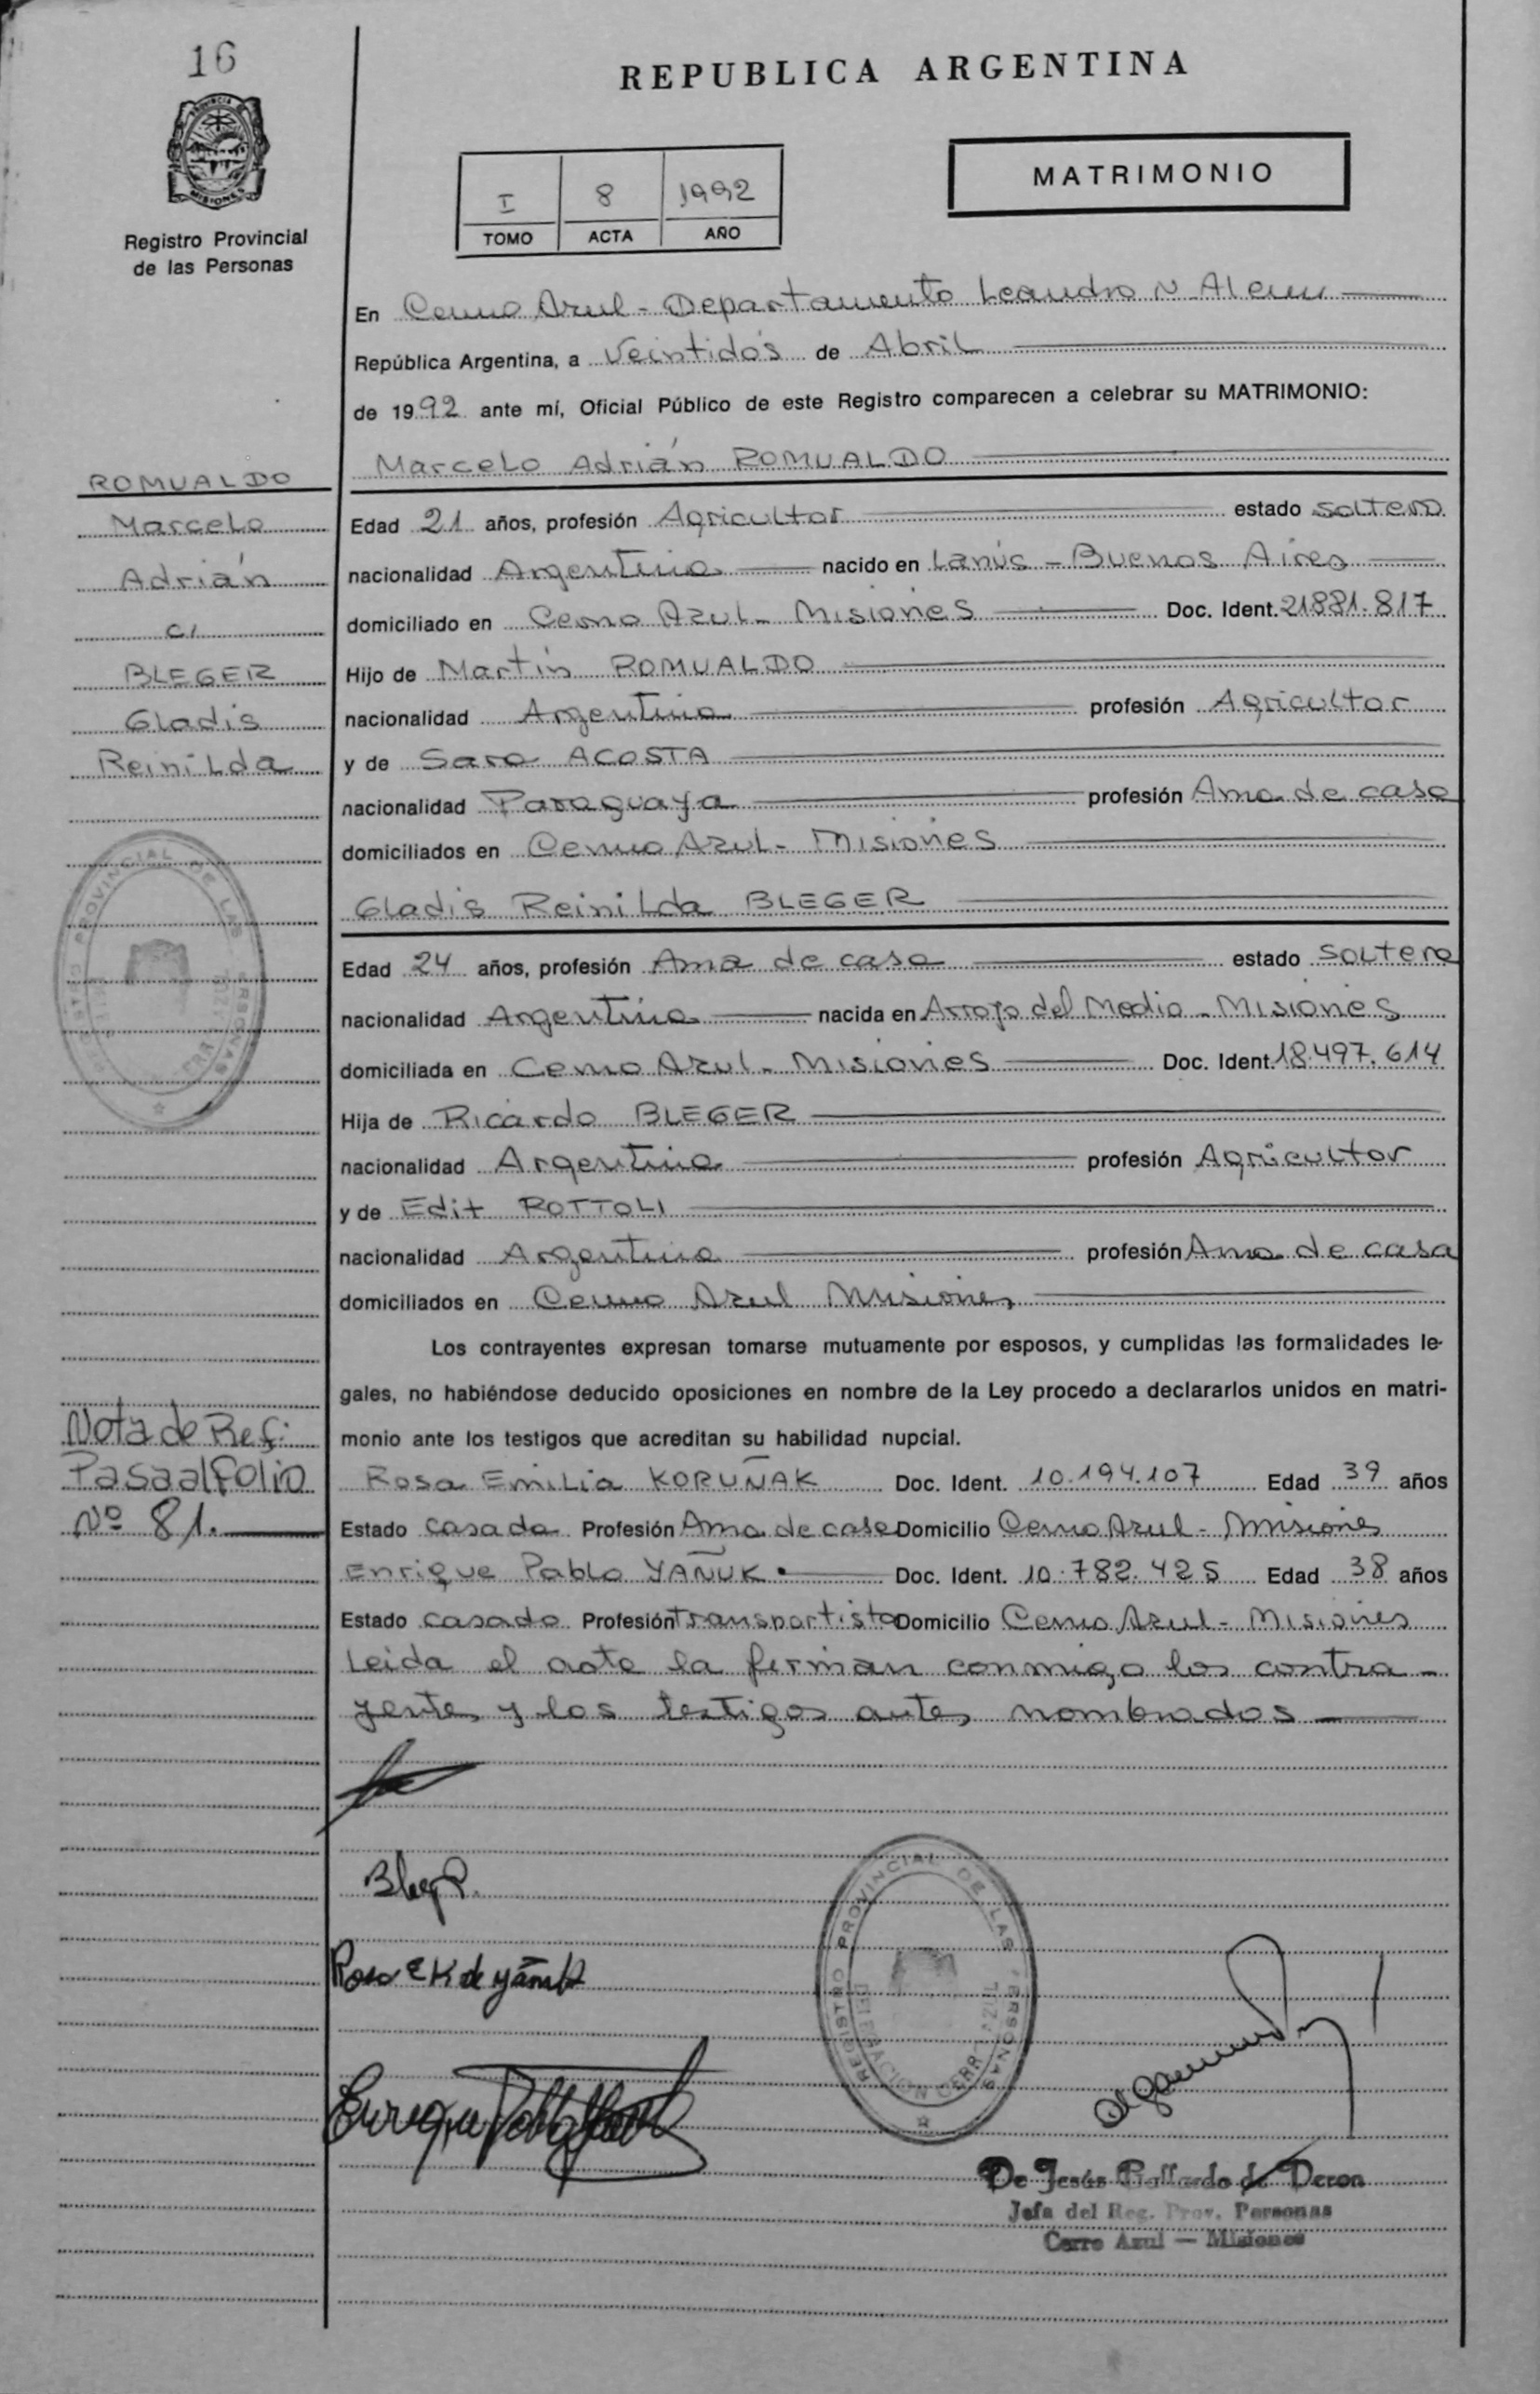 16
REPUBLICA ARGENTINA
PROVINCIA DE
MISIONES
Registro Provincial
de las Personas
I 8 1992
TOMO ACTA AÑO
MATRIMONIO
En Cerro Azul - Departamento Leandro N Alem
República Argentina, a Veintidós de Abril
de 1992 ante mí, Oficial Público de este Registro comparecen a celebrar su MATRIMONIO:
Marcelo Adrián ROMUALDO
ROMUALDO
Marcelo
Adrián
c/
BLEGER
Gladis
Reinilda
Edad 21 años, profesión Agricultor estado soltero
nacionalidad Argentina nacido en Lanús - Buenos Aires
domiciliado en Cerro Azul - Misiones Doc. Ident. 21881.817
Hijo de Martín ROMUALDO
nacionalidad Argentina profesión Agricultor
y de Sara ACOSTA
nacionalidad Paraguaya profesión Ama de casa
domiciliados en Cerro Azul - Misiones
Gladis Reinilda BLEGER
Edad 24 años, profesión Ama de casa estado soltera
nacionalidad Argentina nacida en Arroyo del Medio - Misiones
domiciliada en Cerro Azul - Misiones Doc. Ident. 18.497.614
Hija de Ricardo BLEGER
nacionalidad Argentina profesión Agricultor
y de Edit ROTTOLI
nacionalidad Argentina profesión Ama de casa
domiciliados en Cerro Azul Misiones
Los contrayentes expresan tomarse mutuamente por esposos, y cumplidas las formalidades le-
gales, no habiéndose deducido oposiciones en nombre de la Ley procedo a declararlos unidos en matri-
monio ante los testigos que acreditan su habilidad nupcial.
Nota de Ref:
Pasa al Folio
Nº 81.
Rosa Emilia KORUÑAK Doc. Ident. 10.194.107 Edad 39 años
Estado casada Profesión Ama de casa Domicilio Cerro Azul - Misiones
Enrique Pablo YAÑUK Doc. Ident. 10.782.425 Edad 38 años
Estado casado Profesión transportista Domicilio Cerro Azul - Misiones
Leida el acta la firman conmigo los contra-
yentes y los testigos antes nombrados
Rosa E K de Yañuk
REGISTRO PROVINCIAL DE LAS PERSONAS
DELEGACION CERRO AZUL
De Jesús Gallardo de Deron
Jefa del Reg. Prov. Personas
Cerro Azul — Misiones